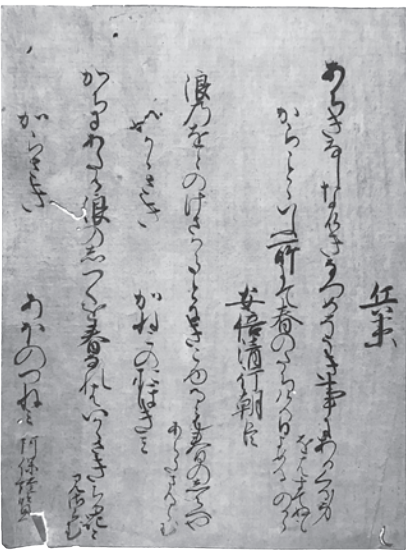 兵衛
あちきなしなけきなつめそうき事にあひくる身
をはすてぬ
ものから
からことといふ所にて春のたちける日よめる
安倍清行朝臣
浪のをとのけさからことにきこゆるは春のしらへや
あらたまるらむ
いかゝさき　かねみのおほきみ
かちにあたる浪のしつくを春なれはいかゝさきちる花と
見さらむ
からさき　あほのつねみ　阿保経覧